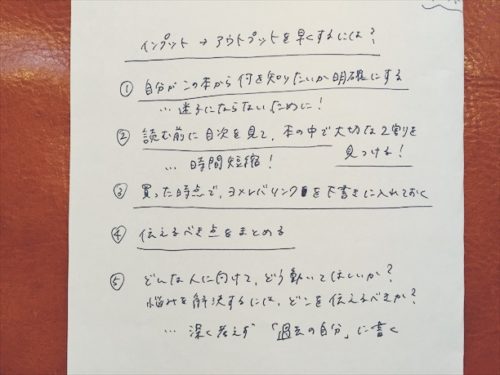 インプット→アウトプットを早くするには?
① 自分がこの本から何を知りたいか明確にする
… 迷子にならないために!
② 読む前に目次を見て、本の中で大切な2割を
… 時間短縮! 見つける!
③ 買った時点で、ヨメレバリンクを下書きに入れておく
④ 伝えるべき点をまとめる
⑤ どんな人に向けて、どう動いてほしいか?
悩みを解決するには、どこを伝えるべきか?
… 深く考えず「過去の自分」に書く